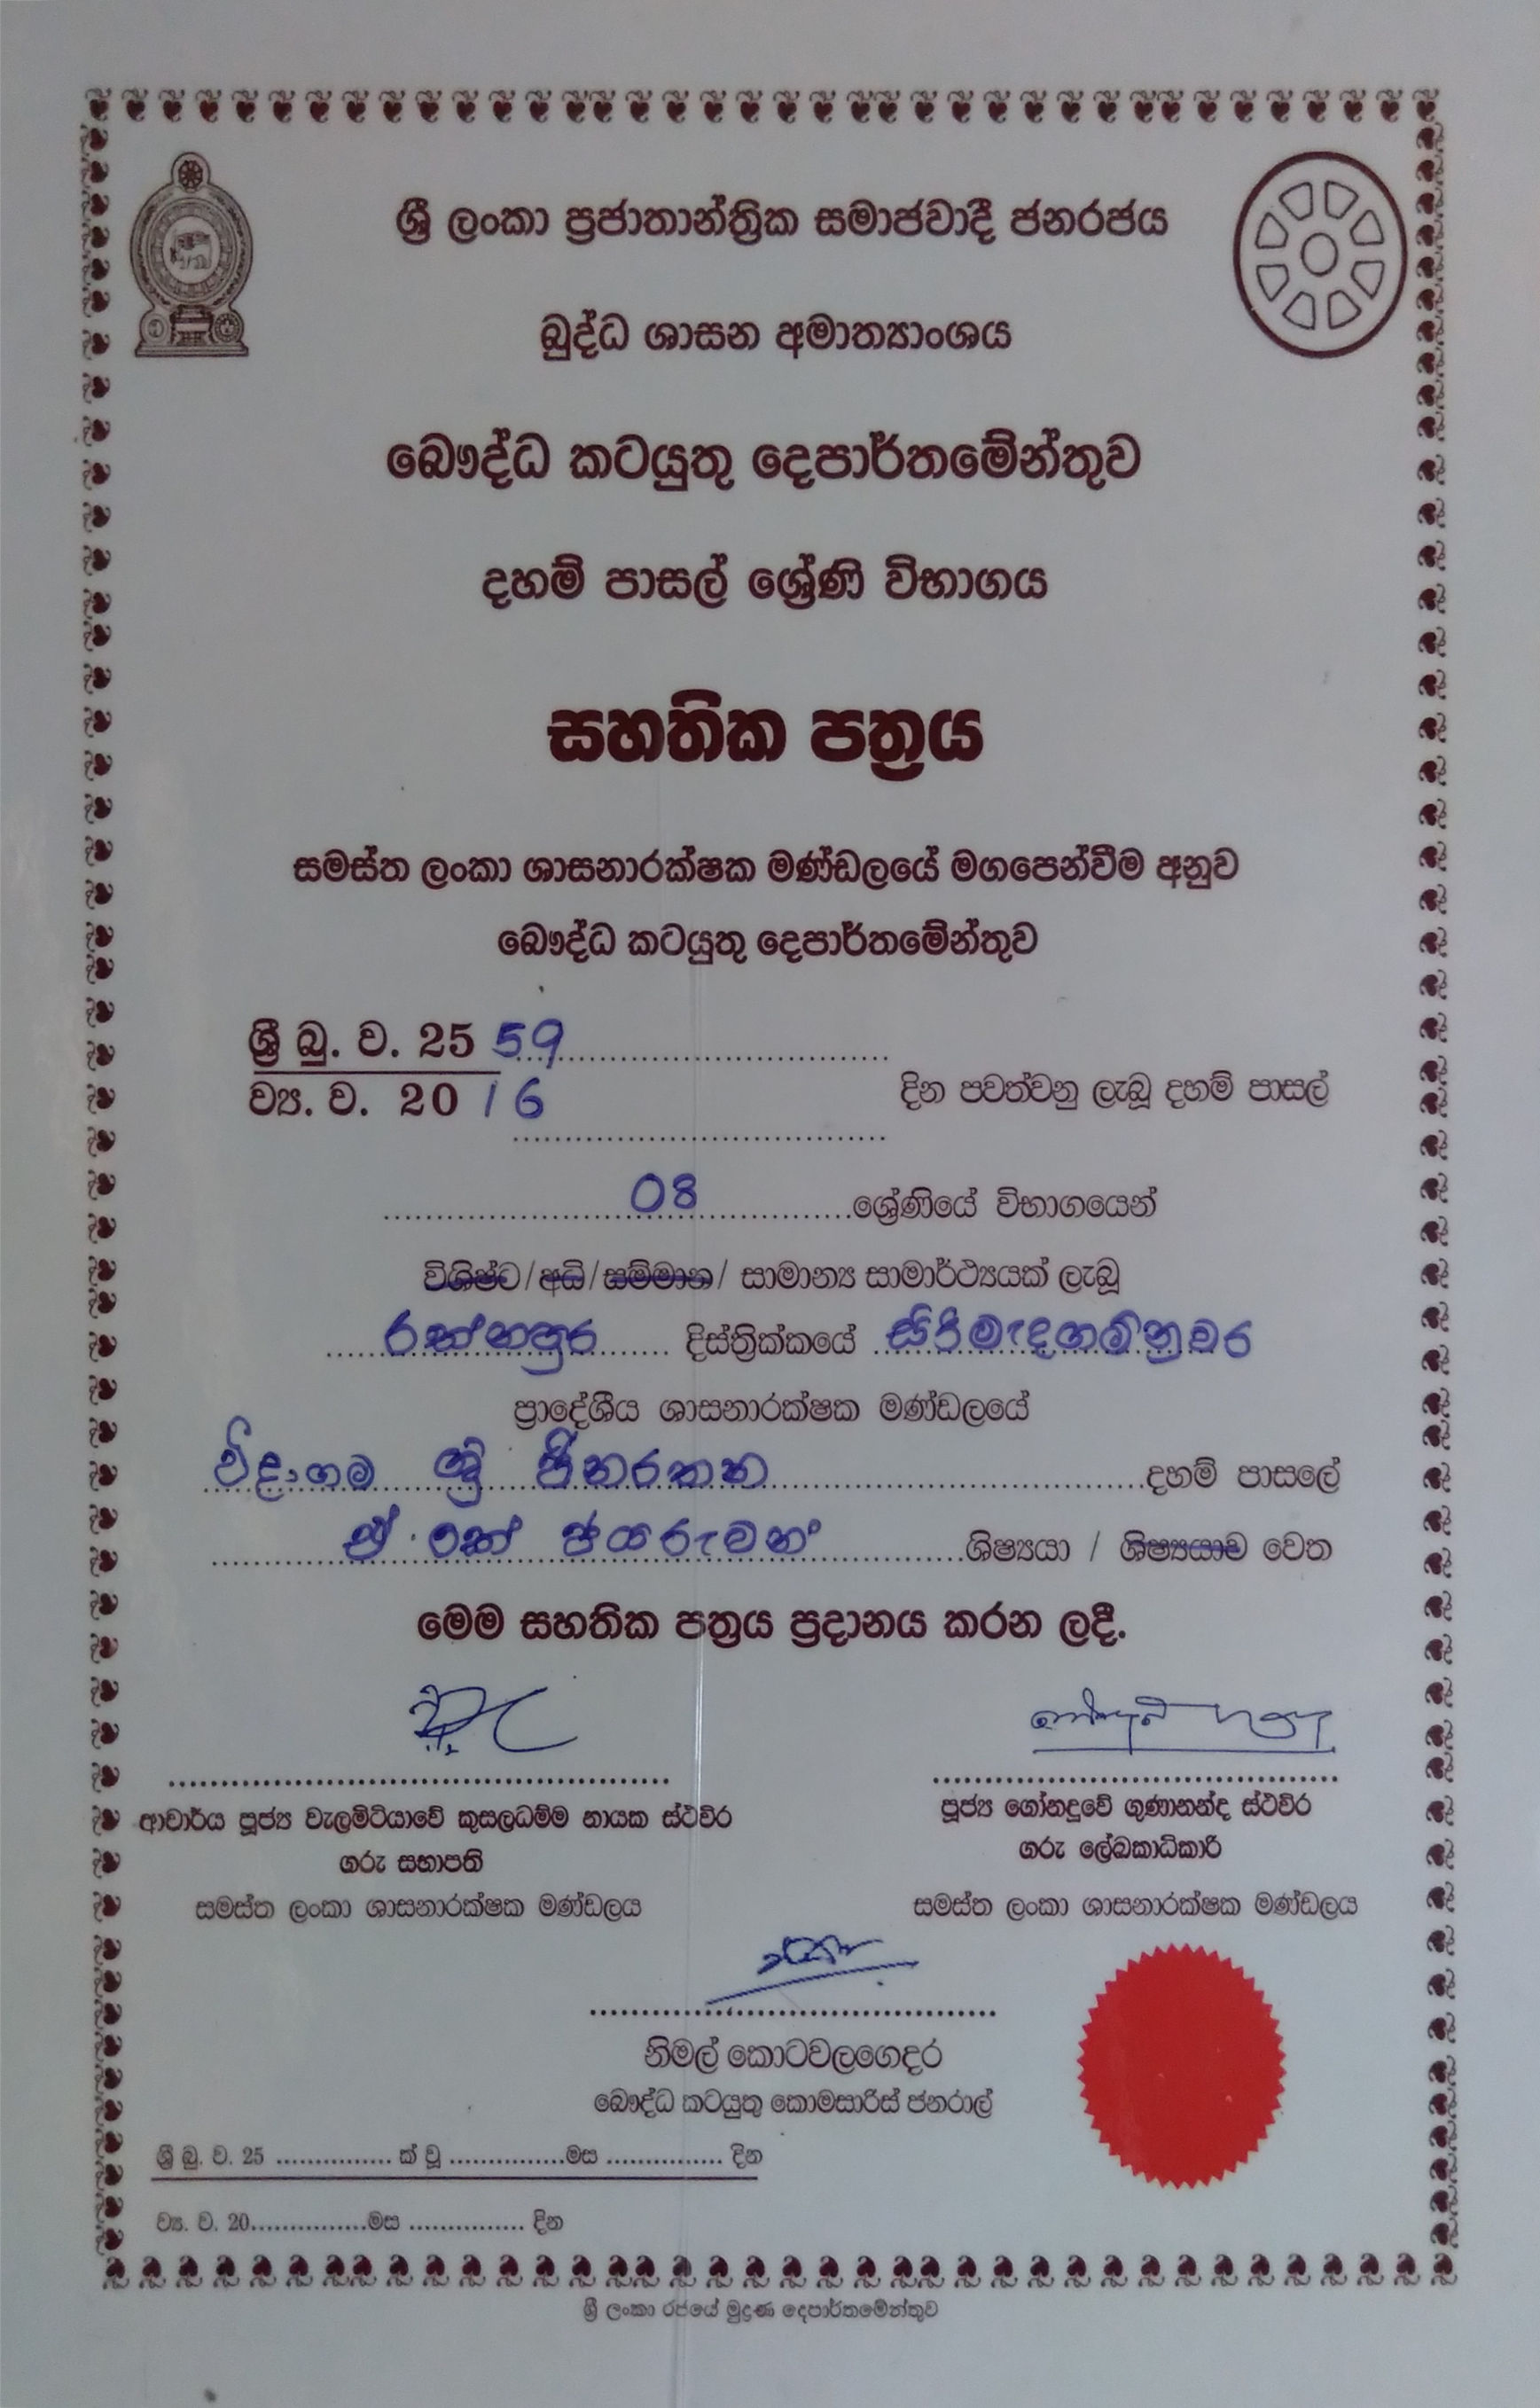 ශ්‍රී ලංකා ප්‍රජාතාන්ත්‍රික සමාජවාදී ජනරජය
බුද්ධ ශාසන අමාත්‍යාංශය
බෞද්ධ කටයුතු දෙපාර්තමේන්තුව
දහම් පාසල් ශ්‍රේණි විභාගය
සහතික පත්‍රය
සමස්ත ලංකා ශාසනාරක්ෂක මණ්ඩලයේ මගපෙන්වීම අනුව
බෞද්ධ කටයුතු දෙපාර්තමේන්තුව
ශ්‍රී බු. ව. 25 59
ව්‍ය. ව. 20 16 දින පවත්වනු ලැබූ දහම් පාසල්
08 ශ්‍රේණියේ විභාගයෙන්
විශිෂ්ට/අධි/සම්මාන/ සාමාන්‍ය සාමාර්ථ්‍යයක් ලැබූ
රත්නපුර දිස්ත්‍රික්කයේ සිරිමැදගම්නුවර
ප්‍රාදේශීය ශාසනාරක්ෂක මණ්ඩලයේ
විදාගම ශ්‍රී ජිනරතන දහම් පාසලේ
ඒ එක් ජයරුවන් ශිෂ්‍යයා / ශිෂ්‍යයාව වෙත
මෙම සහතික පත්‍රය ප්‍රදානය කරන ලදී.
ආචාර්ය පූජ්‍ය වැලමිටියාවේ කුසලධම්ම නායක ස්ථවිර
ගරු සභාපති
සමස්ත ලංකා ශාසනාරක්ෂක මණ්ඩලය
පූජ්‍ය ගෝනදූවේ ගුණානන්ද ස්ථවිර
ගරු ලේඛකාධිකාරි
සමස්ත ලංකා ශාසනාරක්ෂක මණ්ඩලය
නිමල් කොටවලගෙදර
බෞද්ධ කටයුතු කොමසාරිස් ජනරාල්
ශ්‍රී බු. ව. 25 ............... ක් වූ ...............මස ............... දින
ව්‍ය. ව. 20...............මස ............... දින
ශ්‍රී ලංකා රජයේ මුද්‍රණ දෙපාර්තමේන්තුව